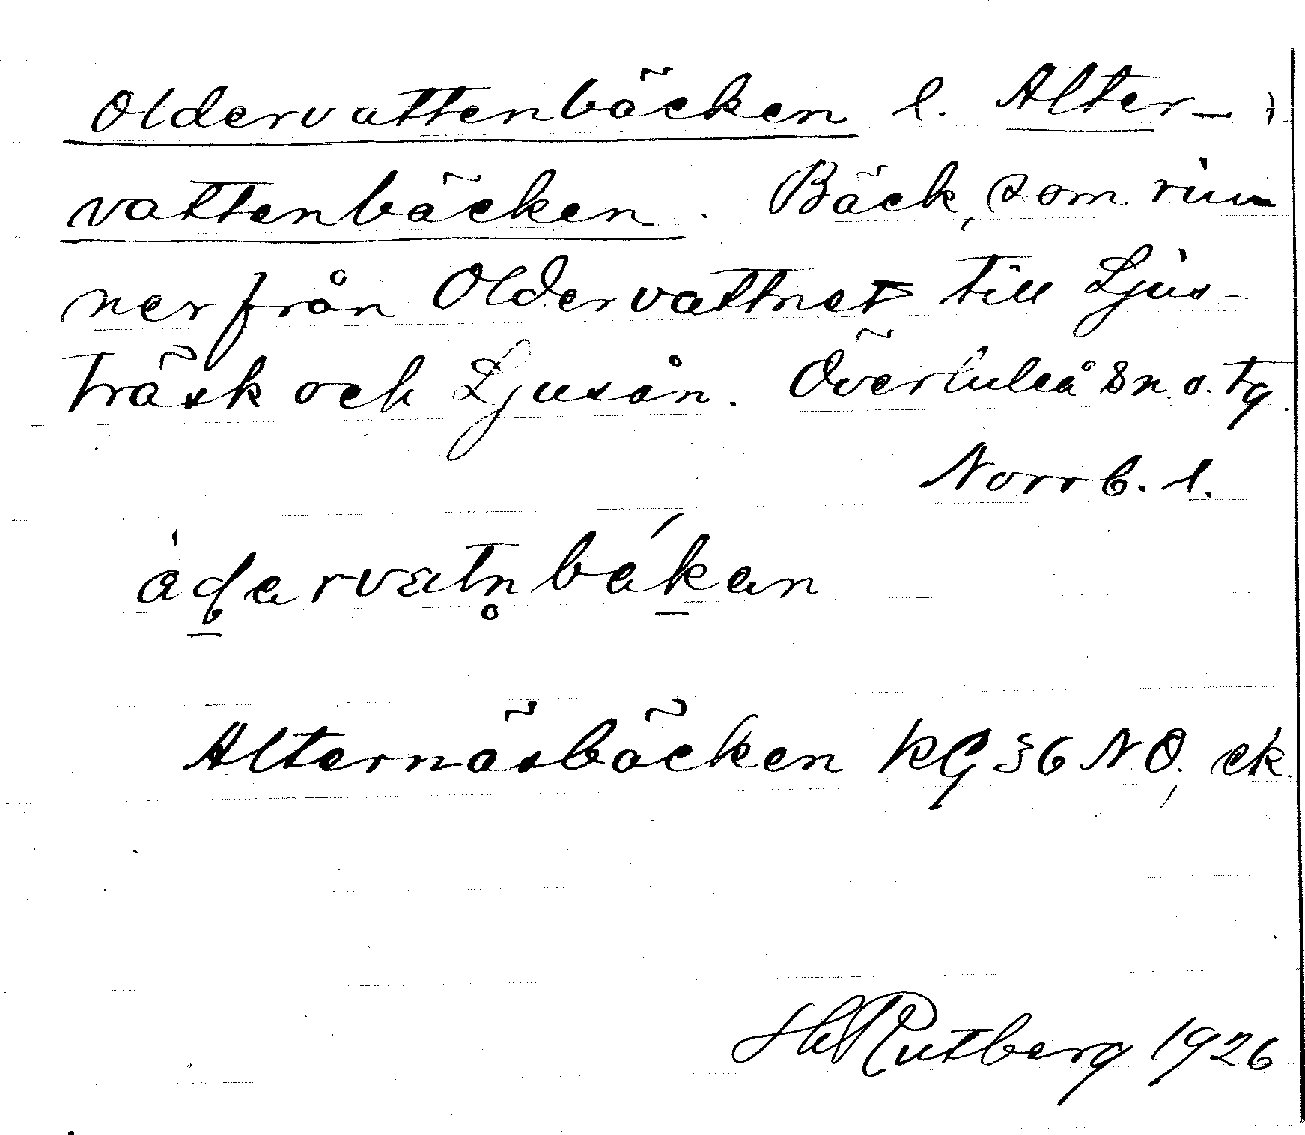 Oldervattenbäcken l. Alter-
vattenbäcken. Bäck, som rin
ner från Oldervattnet till Ljus-
träsk och Ljusån. Överluleå sn o. tg.
Norrb. l.
Alternäsbäcken KG 36 NO, ek.
Rutberg 1926